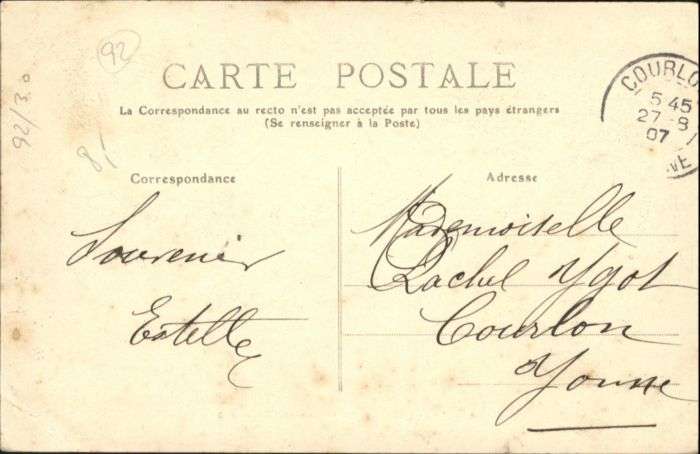 92
92/30
8,-
CARTE POSTALE
La Correspondance au recto n'est pas acceptée par tous les pays étrangers
(Se renseigner à la Poste)
COURLO
5 45
27 - 8
07
NE
Correspondance
Souvenir
Estelle
Adresse
Mademoiselle
Rachel Ygot
Courlon
Yonne